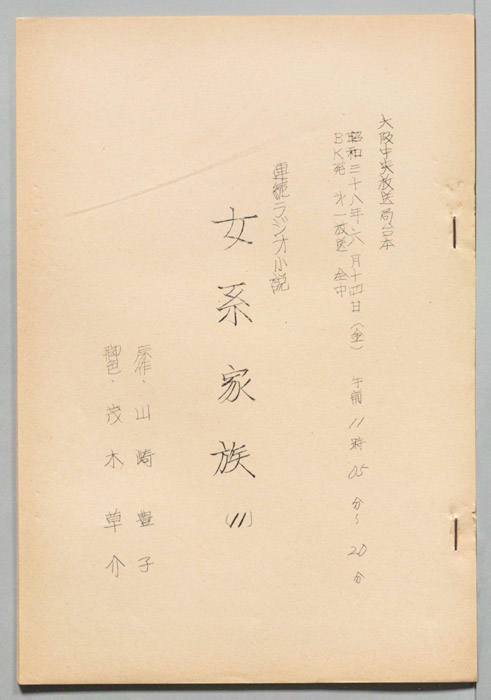 大阪中央放送局台本
昭和三十八年六月十四日（金） 午前11時05分～20分
BK発 オ一放送 全中
連続ラジオ小説
女系家族
(11)
原作・山崎豊子
脚色・茂木草介